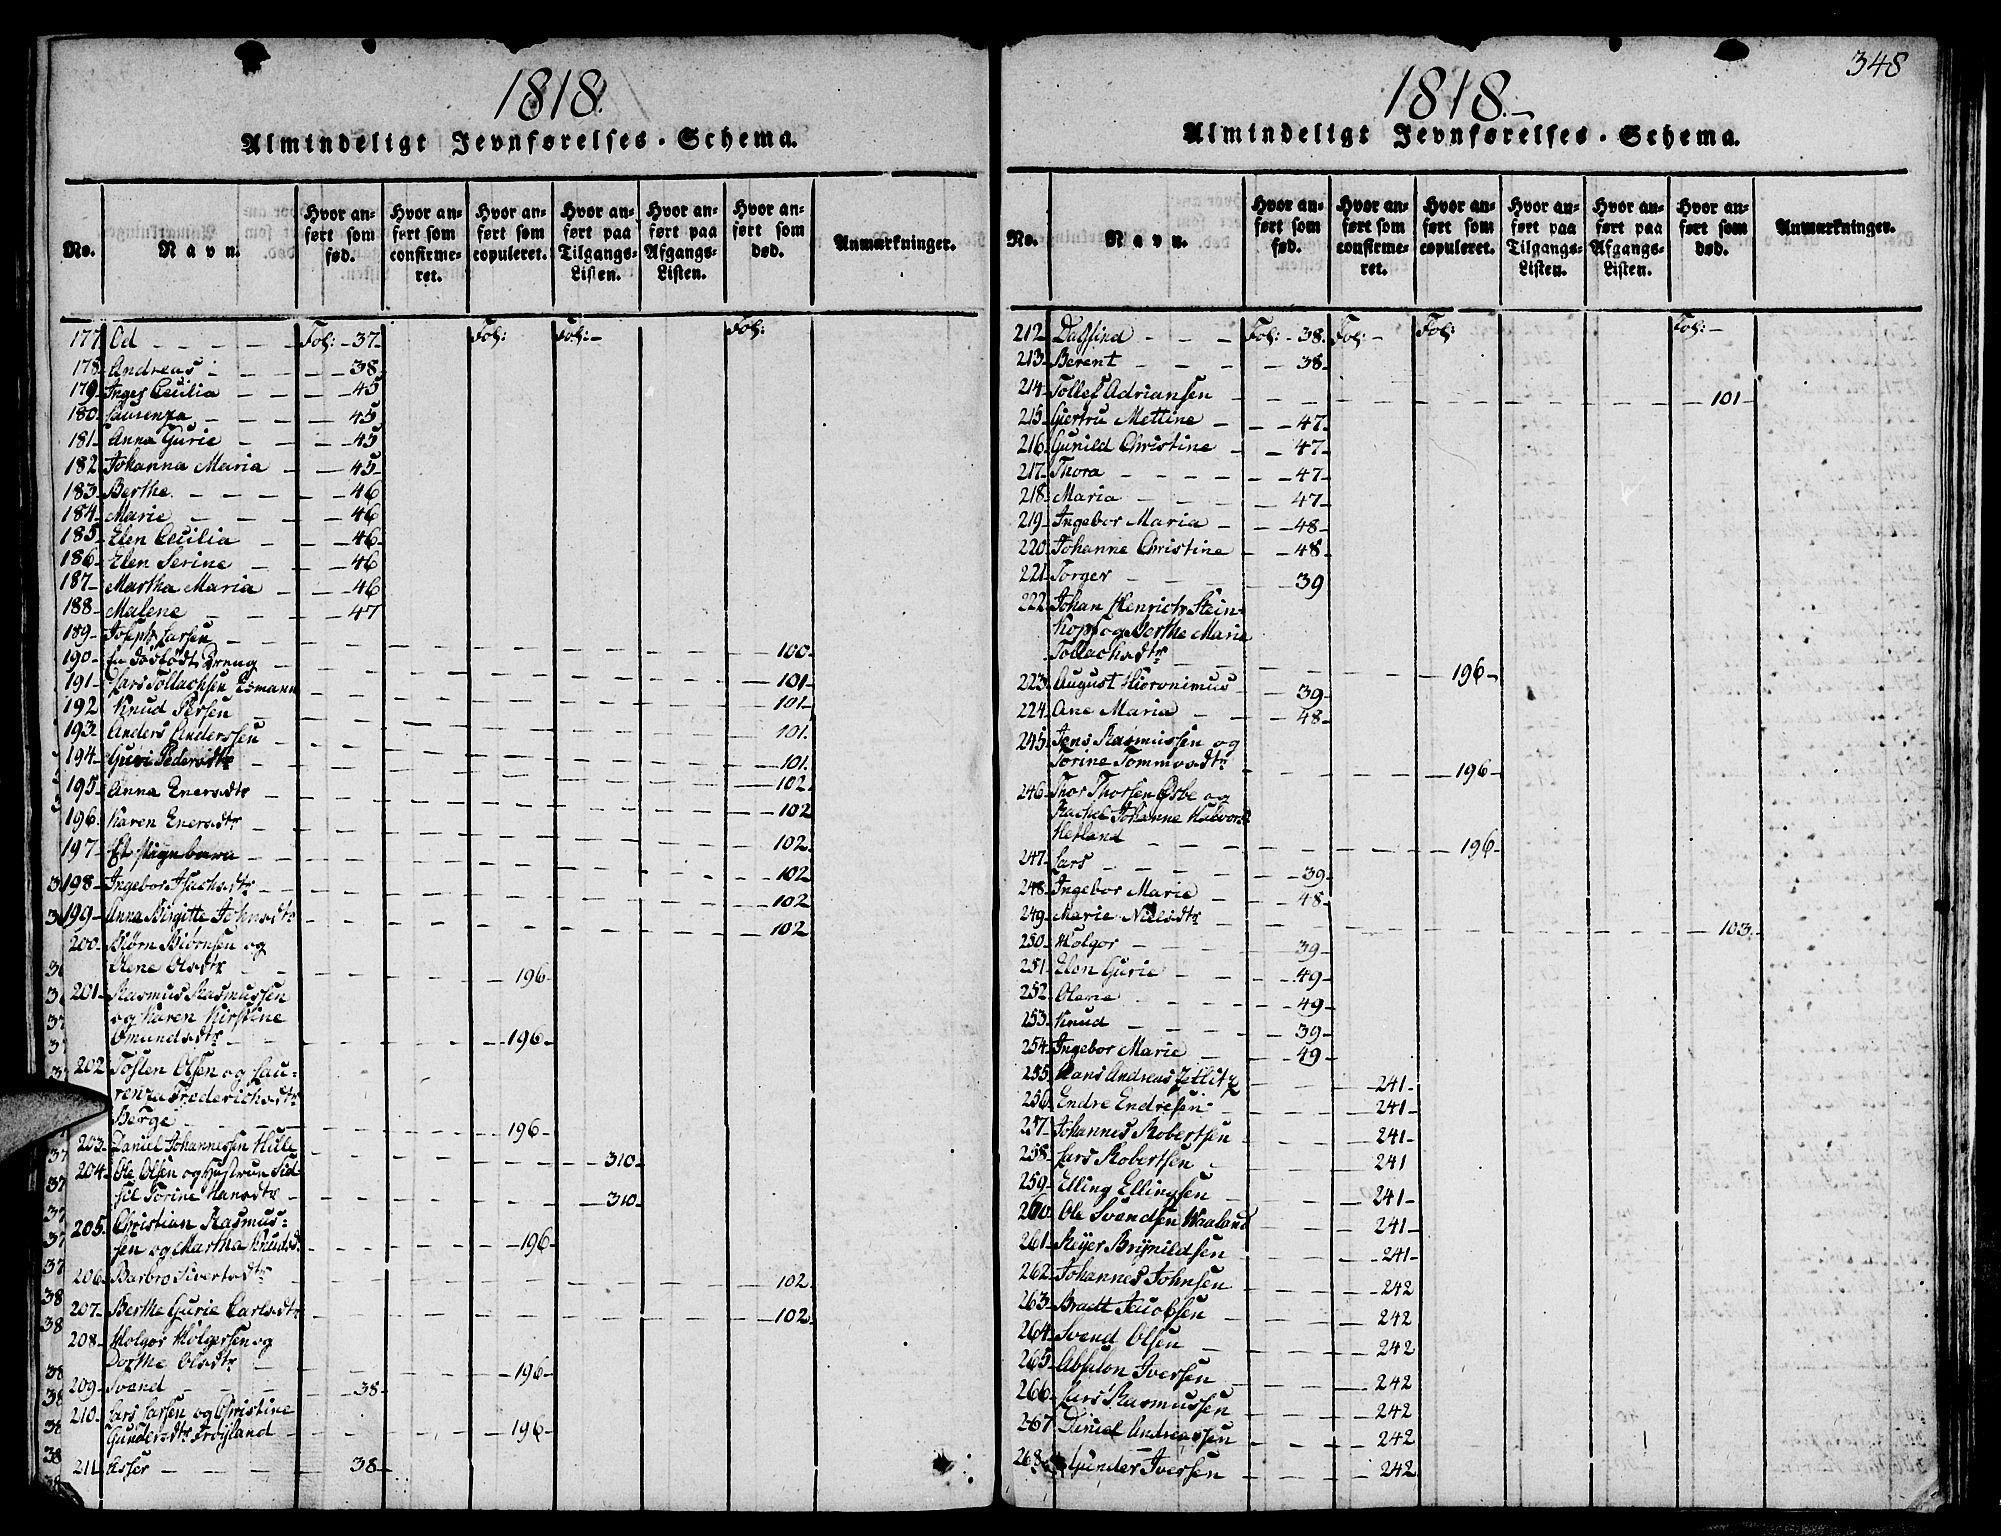 1818.
Almindeligt Jevnførelses-Schema.
No.
Navn.
Hvor anført som fød.
Hvor anført som confirmeret.
Hvor anført som copuleret.
Hvor anført paa Tilgangs-Listen.
Hvor anført paa Afgangs-Listen.
Hvor anført som død.
Anmærkninger.
177 Od - - - - Fol: - 37. Fol: Fol: - Fol:
178. Andreas - - - 38.
179. Inger Cecilia - - - 45
180. Laurenza - - - 45
181. Anna Gurie - - - 45
182. Johanna Maria - - 45.
183. Berthe. - - - - 46
184. Marie - - - - 46
185. Elen Cecilia - - - 46.
186. Elen Serine - - - 46
187. Martha Maria - - - 46
188. Malene - - - 47
189. Joseph Larsen - - - 100.
190. En dødfødt Dreng - - - 101.
191. Lars Tollachsen - - - 101.
192. Knud Persen - - - 101.
193. Anders Anderssen - - - 101.
194. Guri Pedersdtr - - - 102.
195. Anna Enersdtr - - - 102
196. Karen Enersdtr - - - 102.
197. - - - 102
198. Ingebor - - - 102
199. Anna Birgitte Johnsdtr - - - 102.
200. Biørn Biørnsen og
Elene Olsdtr - - - 196.
201. Rasmus Rasmussen
og Karen Kirstine
Omundsdtr - - - 196.
202. Tosten Olsen og Lau-
renza Frederichsdtr
Berge - - - 196.
203. Daniel Johannessen Hille - - - 310.
204. Ole Olsen og Hustrue Sid-
sel Torine Hansdtr - - - 310.
205. Christian Rasmus-
sen og Martha Knudsd. - - - 196.
206. Barbro Sivertsdtr - - - 102.
207. Berthe Gurie Carlsdtr - - - 102.
208. Holger Holgersen og
Dorthe Olsdtr - - - 196.
209. Svend - - - 38.
210. Lars Larsen og Christine
Gundersdtr Frøyland - - - 196.
211. Asser - - - 38.
348
1818.-
Almindeligt Jevnførelses-Schema.
No.
Navn.
Hvor anført som fød.
Hvor anført som confirmeret.
Hvor anført som copuleret.
Hvor anført paa Tilgangs-Listen.
Hvor anført paa Afgangs-Listen.
Hvor anført som død.
Anmærkninger.
212. Dagfind - - - Fol: - 38. Fol: - Fol: Fol: -
213. Berent - - - 38.
214. Tollef Adriansen - - - 101
215. Giertru Mettine - - - 47.
216. Gunild Christine - - 47.
217. Thora - - - 47.
218. Maria - - - 47.
219. Ingebor Maria - - 48.
220. Johanne Christine - - 48.
221. Torger - - - 39
222. Johan Henrich Stein-
kopf og Berthe Maria
Tollachsdtr - - - 196.
223. August Hieronimus - 39.
224. Ane Maria - - 48.
245. Jens Rasmussen og
Torine Tommasdtr - - - 196
246. Thor Thorsen Osbe og
Rachel Johanne Halvorsd.
Hetland - - - 196.
247. Lars - - - 39.
248. Ingebor Marie - - 48.
249. Marie Nielsdtr - - - 103.
250. Holger - - - 39.
251. Elen Gurie - - 49.
252. Olene - - - 49.
253. Knud - - - 39.
254. Ingebor Marie - - 49.
255. Hans Andreas Zetlitz - - - 241.
256. Endre Endresen - - - 241.
257. Johannes Robertsen - - - 241.
258. Lars Robertsen - - - 241
259. Elling Ellingsen - - - 241.
260. Ole Svendsen Waaland - - - 241.
261. Reyer Brynildsen - - - 241.
262. Johannes Johnsen - - - 242
263. Bradt Jacobsen - - - 242
264. Svend Olsen - - - 242
265. Absalon Iversen - - - 242
266. Lars Rasmussen - - - 242
267. Daniel Andreassen - - - 242
268. Gunder Iversen - - - 242